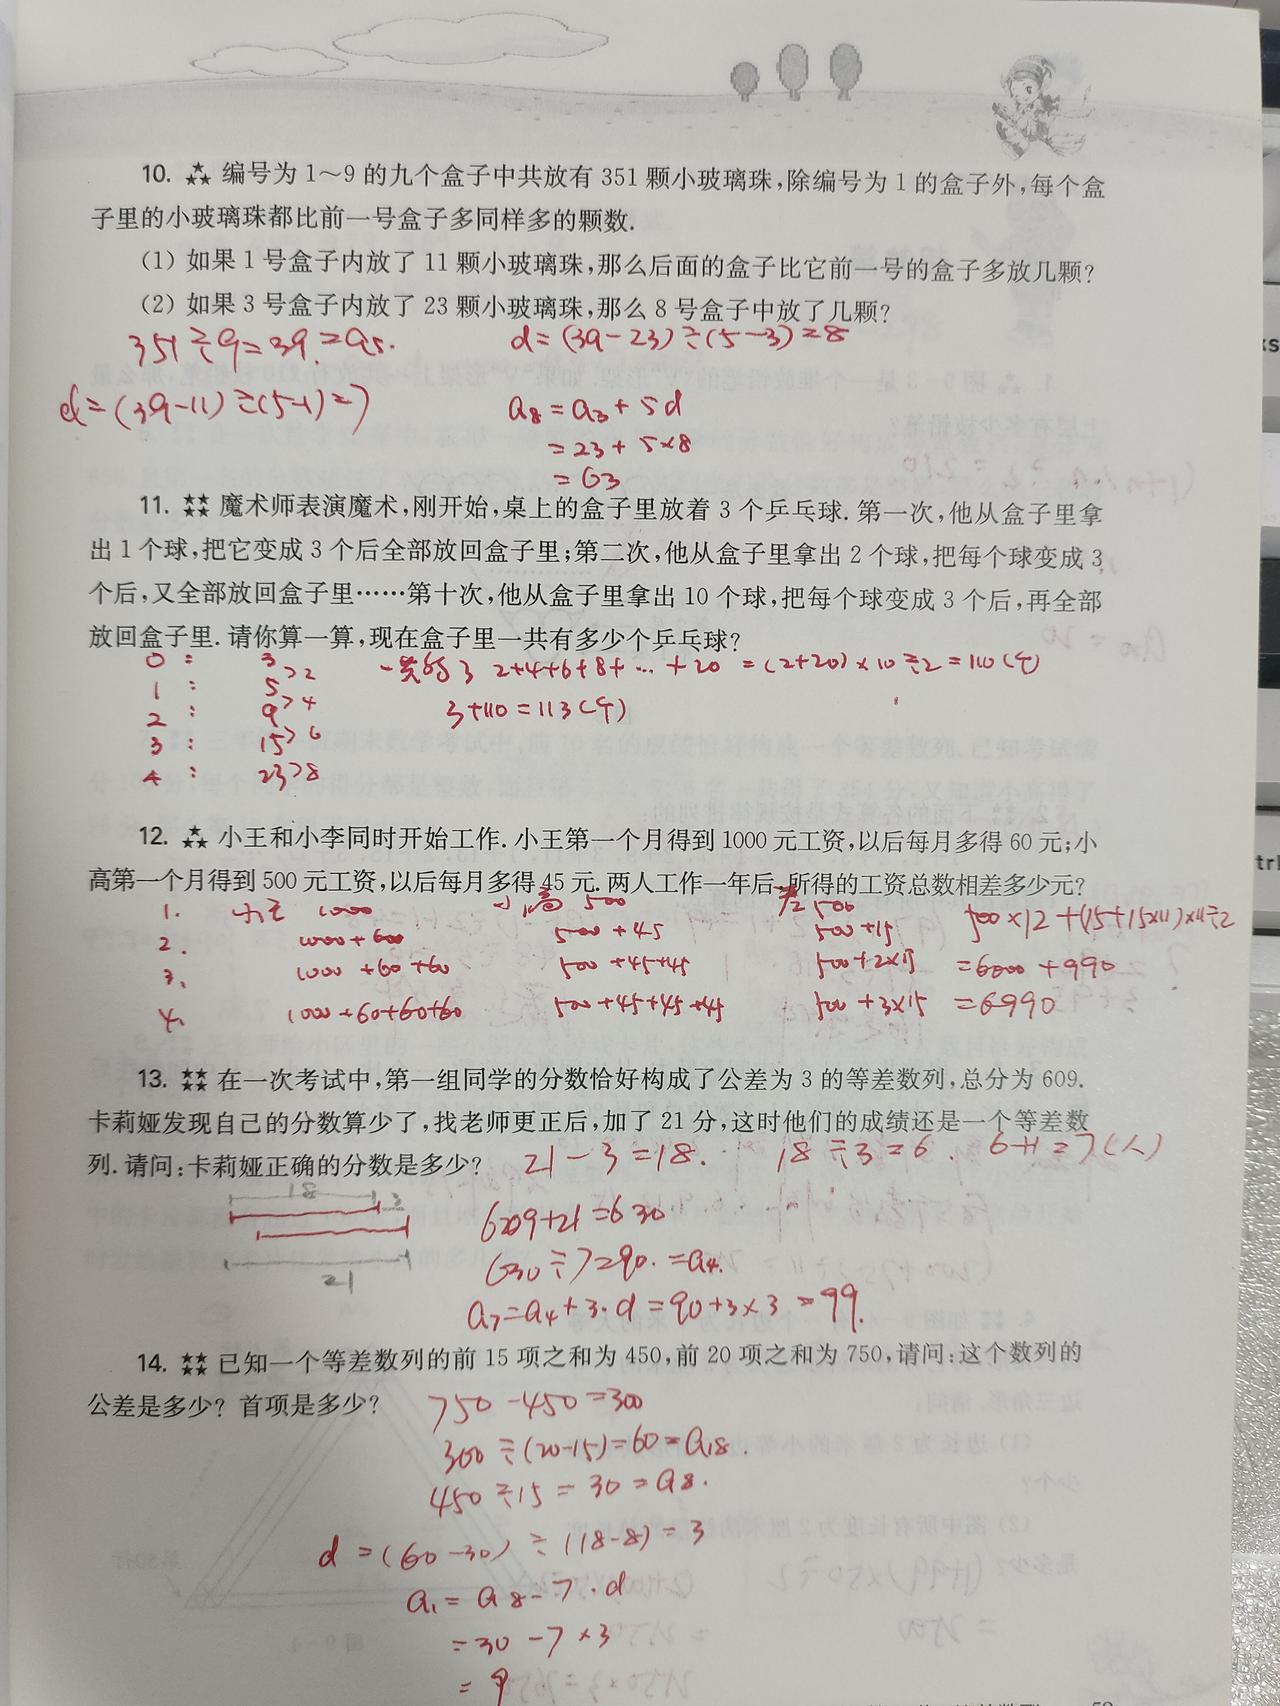 10. 编号为 1～9 的九个盒子中共放有 351 颗小玻璃珠,除编号为 1 的盒子外,每个盒
子里的小玻璃珠都比前一号盒子多同样多的颗数.
(1) 如果 1 号盒子内放了 11 颗小玻璃珠,那么后面的盒子比它前一号的盒子多放几颗?
(2) 如果 3 号盒子内放了 23 颗小玻璃珠,那么 8 号盒子中放了几颗?
351÷9=39=a5. d=(39-23)÷(5-3)=8
d=(39-11)÷(5-1)=7 a8=a3+5d
=23+5×8
=63
11. 魔术师表演魔术,刚开始,桌上的盒子里放着 3 个乒乓球. 第一次,他从盒子里拿
出 1 个球,把它变成 3 个后全部放回盒子里;第二次,他从盒子里拿出 2 个球,把每个球变成 3
个后,又全部放回盒子里……第十次,他从盒子里拿出 10 个球,把每个球变成 3 个后,再全部
放回盒子里. 请你算一算,现在盒子里一共有多少个乒乓球?
0: 3>2 一共的了 2+4+6+8+…+20=(2+20)×10÷2=110(个)
1: 5>4
2: 9>6 3+110=113(个)
3: 15>8
4: 23
12. 小王和小李同时开始工作. 小王第一个月得到 1000 元工资,以后每月多得 60 元;小
高第一个月得到 500 元工资,以后每月多得 45 元. 两人工作一年后,所得的工资总数相差多少元?
1. 小王 1000 小高 500 差 500 500×12+(15+15×11)×11÷2
2. 1000+60 500+45 500+15
3. 1000+60+60 500+45+45 500+2×15 =6000+990
4. 1000+60+60+60 500+45+45+45 500+3×15 =6990
13. 在一次考试中,第一组同学的分数恰好构成了公差为 3 的等差数列,总分为 609.
卡莉娅发现自己的分数算少了,找老师更正后,加了 21 分,这时他们的成绩还是一个等差数
列. 请问:卡莉娅正确的分数是多少? 21-3=18. 18÷3=6. 6+1=7(人)
18 3
609+21=630
21 630÷7=90.=a4.
a7=a4+3·d=90+3×3=99.
14. 已知一个等差数列的前 15 项之和为 450,前 20 项之和为 750,请问:这个数列的
公差是多少? 首项是多少? 750-450=300
300÷(20-15)=60=a18.
450÷15=30=a8.
d=(60-30)÷(18-8)=3
a1=a8-7·d
=30-7×3
=9